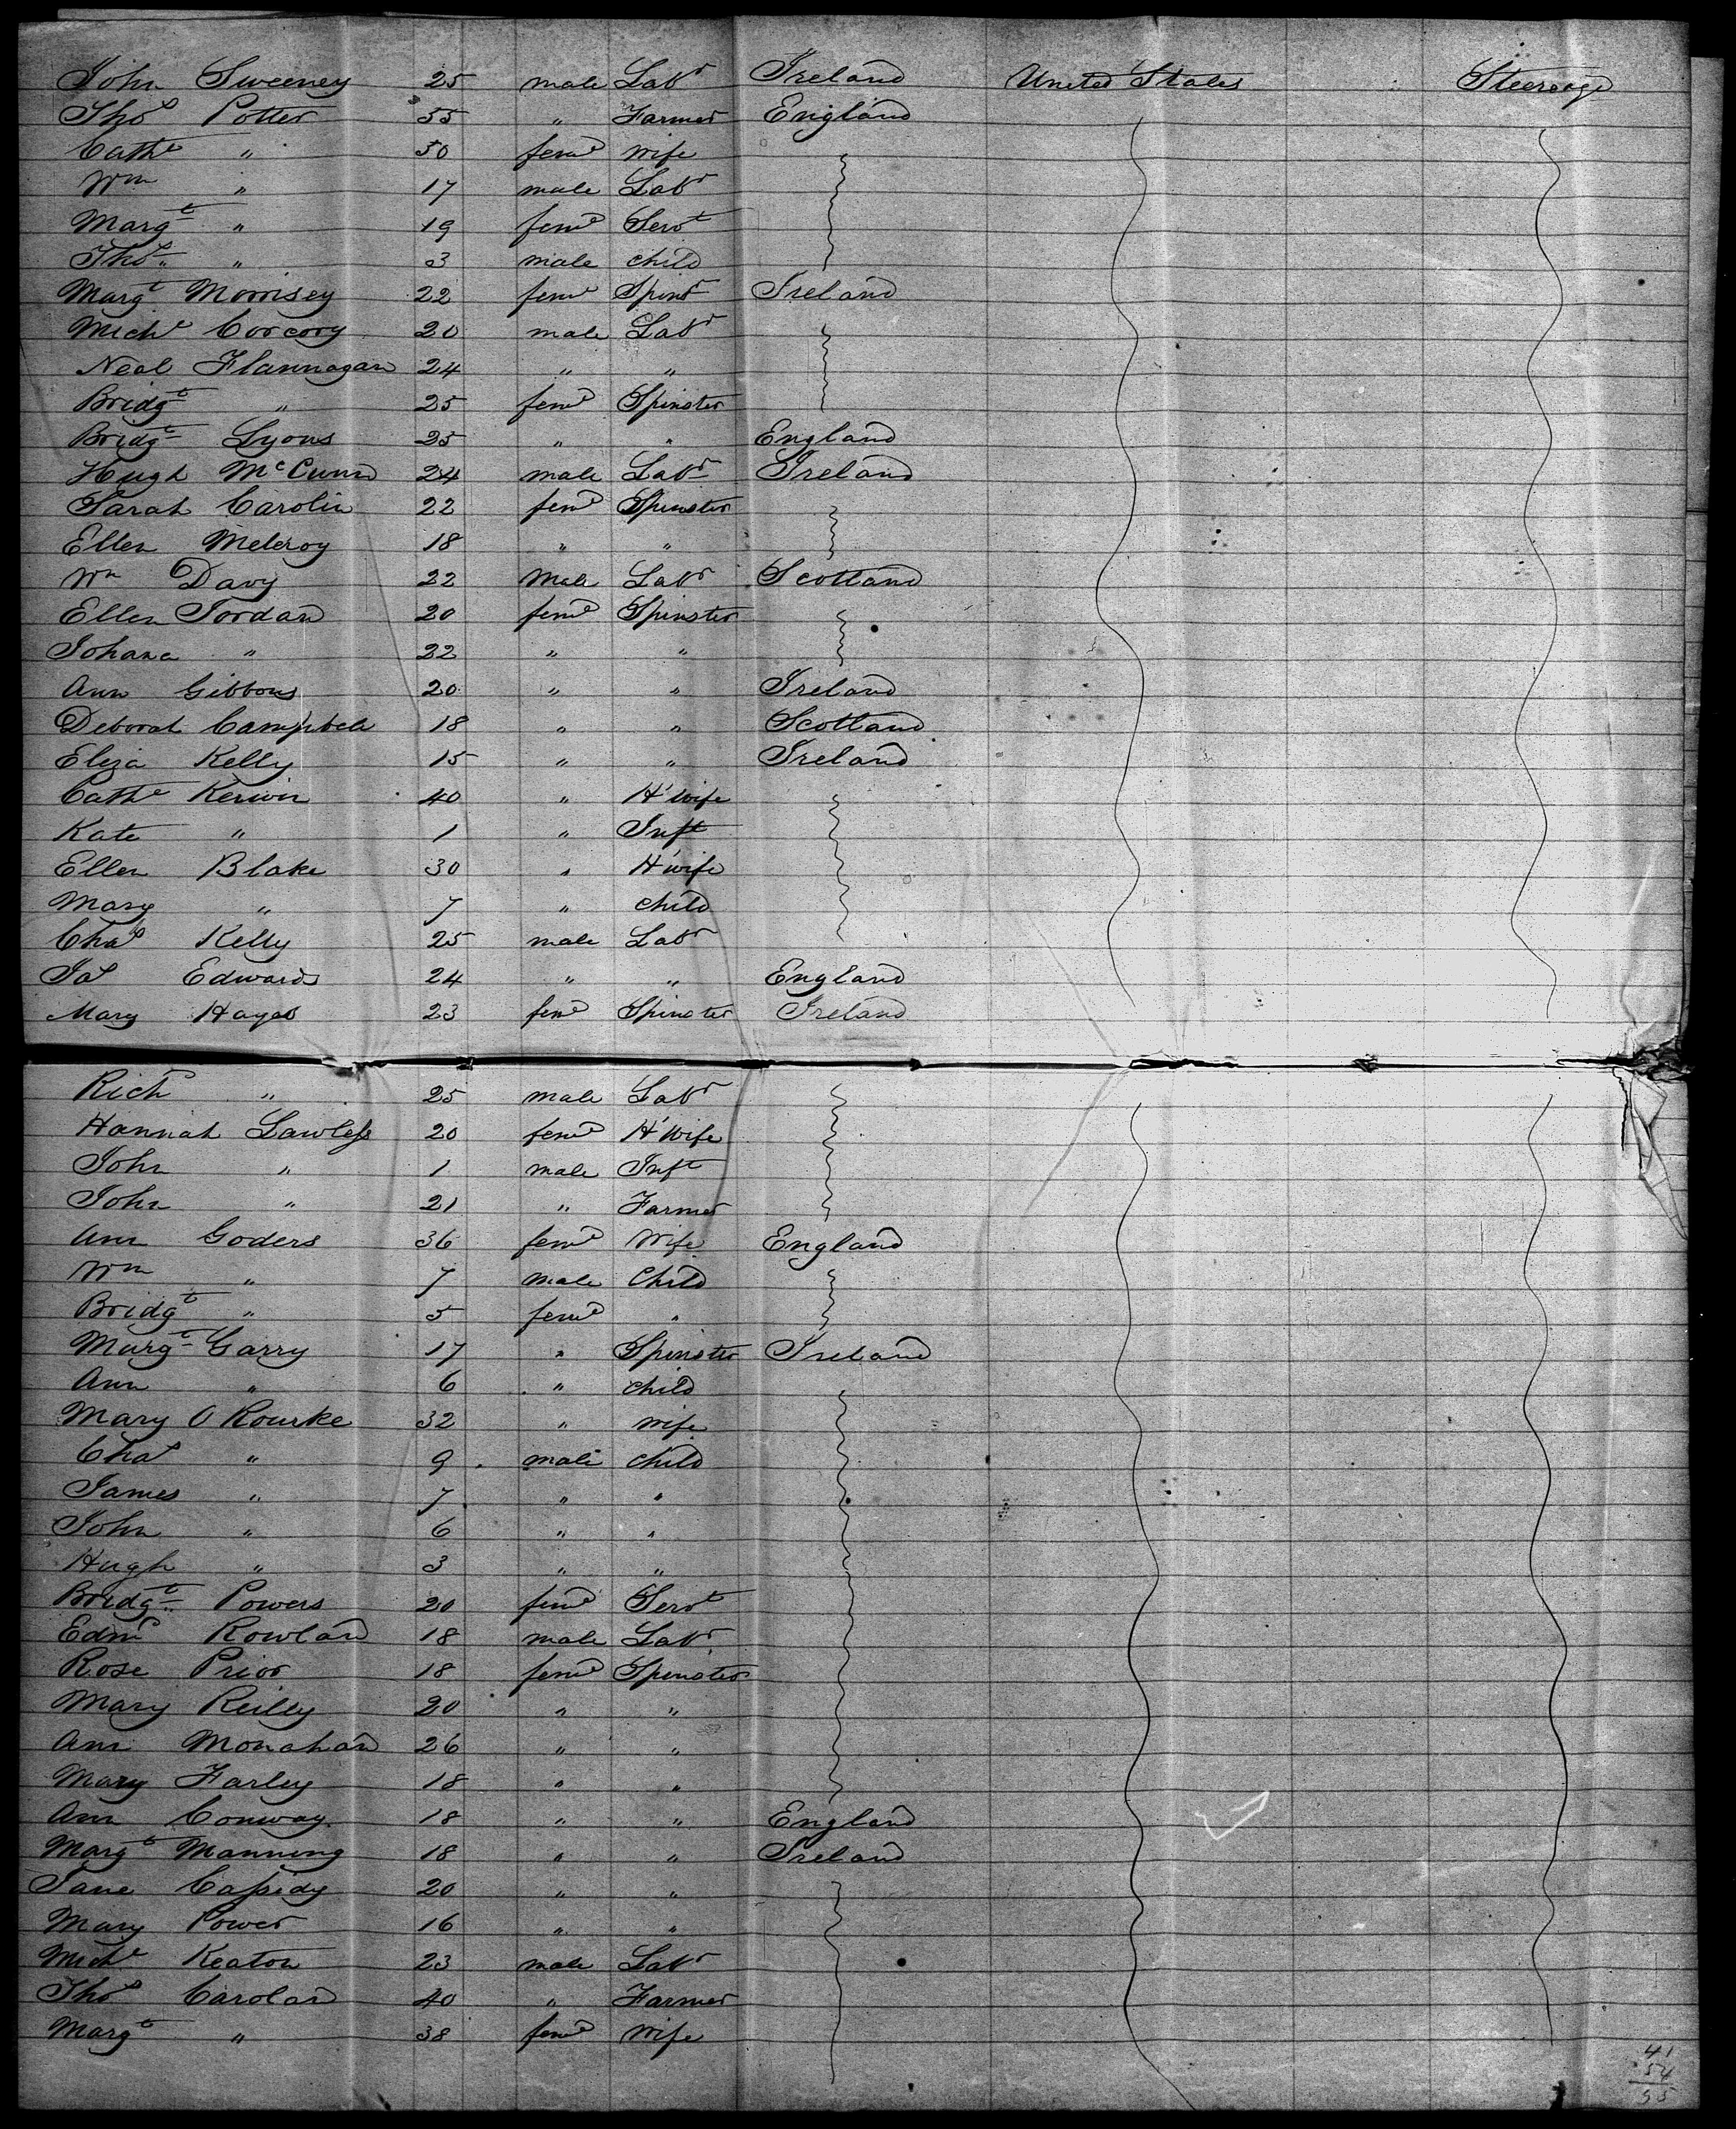 John Sweeney 25 male Labr Ireland United States Steerage
Thos Potter 55 " Farmer England
Cathe " 50 feme wife
Wm " 17 male Labr
Margt " 19 feme Servt
Thos " 3 male child
Margt Morrisey 22 feme Spinr Ireland
Michl Corcory 20 male Labr
Neal Flannagan 24 " "
Bridgt " 25 feme Spinster
Bridgt Lyons 25 " " England
Hugh McCunn 24 male Labr Ireland
Sarah Carolin 22 feme Spinster
Ellen Meleroy 18 " "
Wm Davy 22 Male Labr Scotland
Ellen Jordan 20 feme Spinster
Johana " 22 " "
Ann Gibbons 20 " " Ireland
Deborah Campbell 18 " " Scotland
Eliza Kelly 15 " " Ireland
Cathe Kerwin 40 " H'wife
Kate " 1 " Inft
Ellen Blake 30 " H'wife
Mary " 7 " child
Chas Kelly 25 male Labr
Jas Edwards 24 " " England
Mary Hayes 23 feme Spinster Ireland
Richd " 25 male Labr
Hannah Lawless 20 feme H'Wife
John " 1 male Inft
John " 21 " Farmer
Ann Goders 36 feme Wife England
Wm " 7 male Child
Bridgt " 5 feme "
Margt Garry 17 " Spinster Ireland
Ann " 6 " child
Mary O Rourke 32 " wife
Chas " 9 male child
James " 7 " "
John " 6 " "
Hugh " 3 " "
Bridgt Powers 20 feme Servt
Edmd Rowland 18 male Labr
Rose Prior 18 feme Spinster
Mary Reilly 20 " "
Ann Monahan 26 " "
Mary Farley 18 " "
Ann Conway 18 " " England
Margt Manning 18 " " Ireland
Jane Cassidy 20 " "
Mary Power 16 " "
Michl Keaton 23 male Labr
Thos Carolan 40 " Farmer
Margt " 38 feme Wife
41
54
95